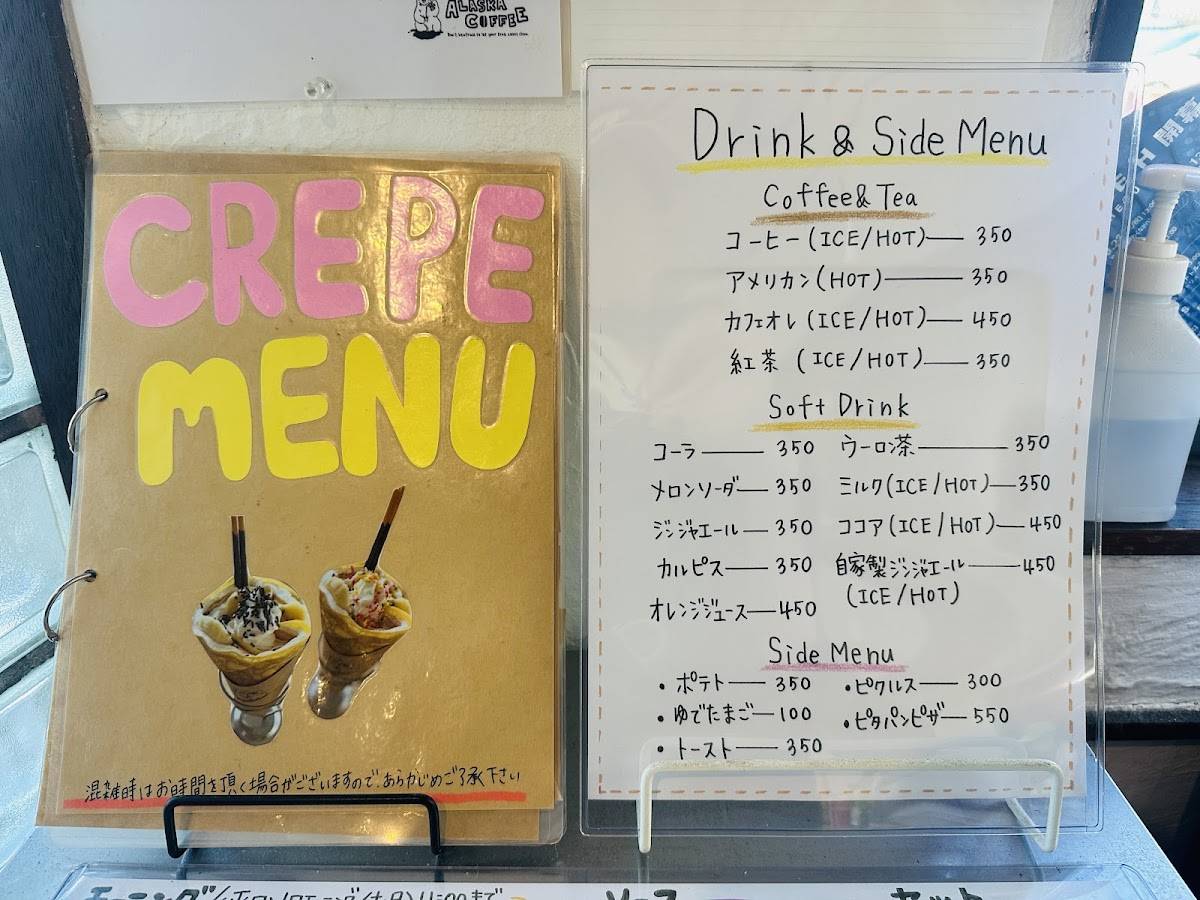 ALASKA
COFFEE
CREPE
MENU
混雑時はお時間を頂く場合がございますので、あらかじめご了承下さい
Drink & Side Menu
Coffee & Tea
コーヒー(ICE/HOT)― 350
アメリカン(HOT)― 350
カフェオレ(ICE/HOT)― 450
紅茶 (ICE/HOT)― 350
Soft Drink
コーラ― 350
メロンソーダ― 350
ジンジャエール― 350
カルピス― 350
オレンジジュース― 450
ウーロン茶― 350
ミルク(ICE/HOT)― 350
ココア(ICE/HOT)― 450
自家製ジンジャエール― 450
(ICE/HOT)
Side Menu
・ポテト― 350
・ゆでたまご― 100
・トースト― 350
・ピクルス― 300
・ピタパンピザ― 550
開幕
モーニング
11:00まで
ソース
セット